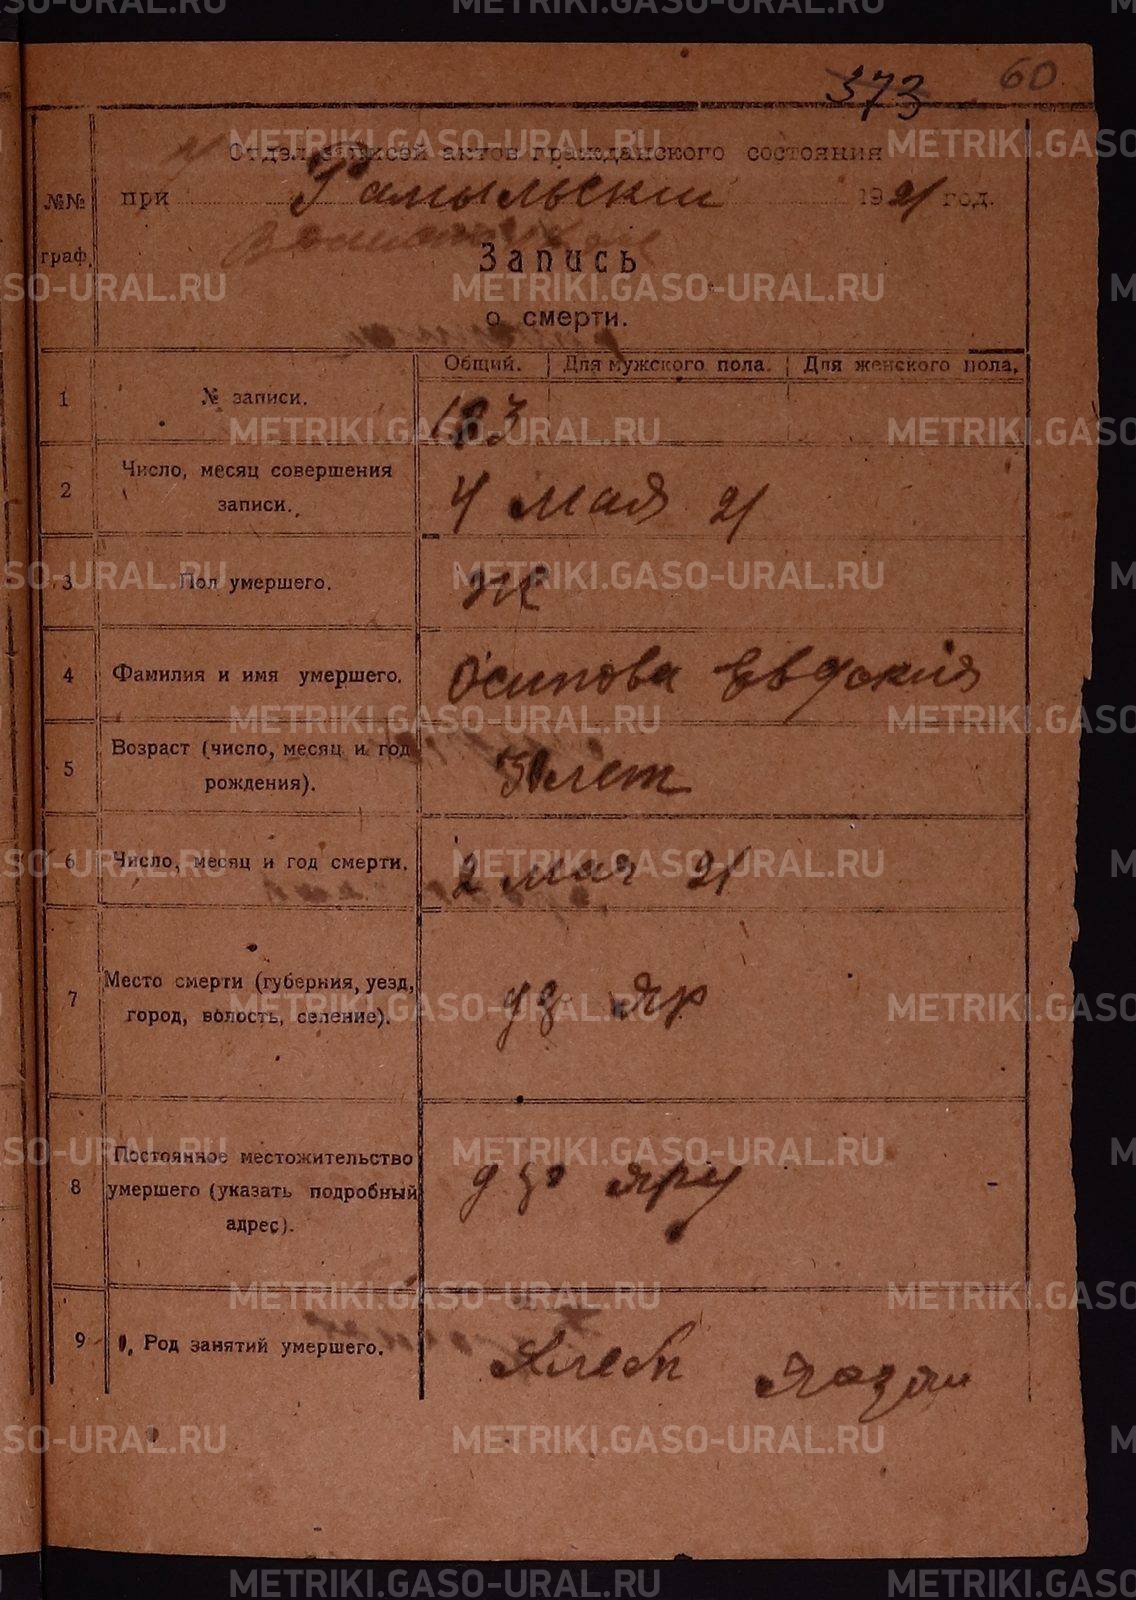 373 60
Отдел записей актов гражданского состояния
при 1921 год.
№№ граф.
Запись
о смерти.
Общий. Для мужского пола. Для женского пола.
1 № записи. 183
2 Число, месяц совершения
записи. 4 мая 21
3 Пол умершего. ж
4 Фамилия и имя умершего. Осипова Евдокия
5 Возраст (число, месяц и год
рождения). лет
6 Число, месяц и год смерти. 2 мая 21
7 Место смерти (губерния, уезд,
город, волость, селение). Яр
8 Постоянное местожительство
умершего (указать подробный
адрес). Яру
9 Род занятий умершего. Хлеб
METRIKI.GASO-URAL.RU